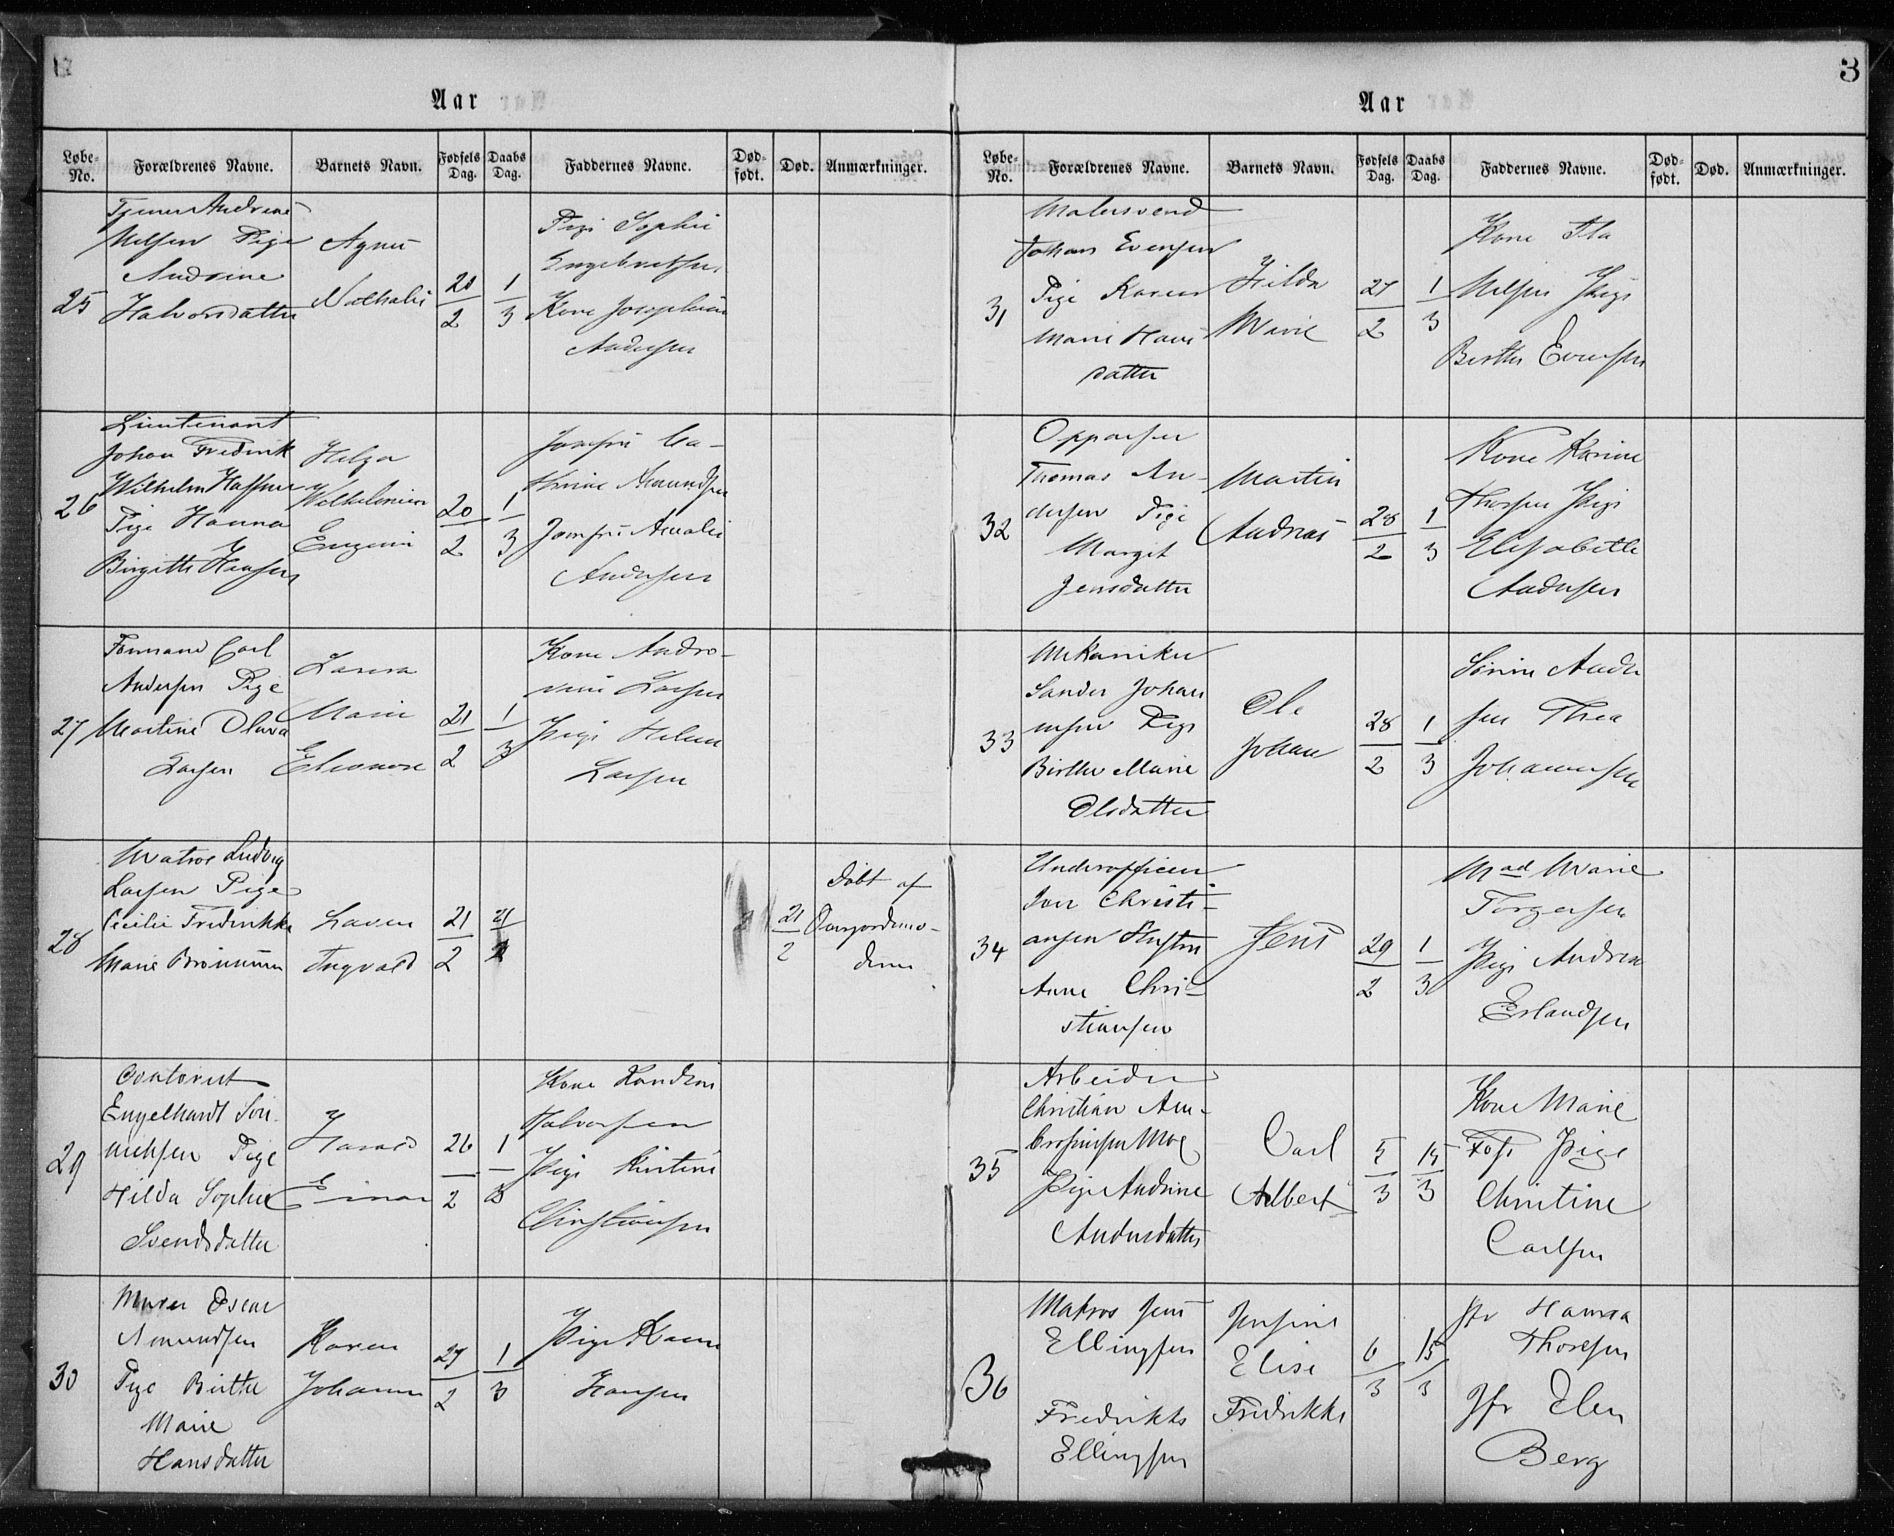 3
Aar
Løbe-No. Forældrenes Navne. Barnets Navn. Fødsels Dag. Daabs Dag. Faddernes Navne. Død-født. Død. Anmærkninger.
25
Tjener Andreas
Nilsen Pige
Andrine
Halvorsdatter
Agnes
Nathalie
1/3
Pige Sophie
Engebretsen
Kone Josephine
Andersen
26
Lieutenant
Johan Fredrik
Wilhelm
Pige Hanna
Birgitte Hansen
Helga
Wilhelmine
Eugenie
20/2
1/3
Jomfru Ca-
thrine Amundsen
Jomfru Amalie
Andersen
27
Formand Carl
Andersen Pige
Martine Olava
Larsen
Laura
Marie
Eleonore
21/2
1/3
Kone Andro-
vine Larsen
Pige Helene
Larsen
28
Matros Ludvig
Larsen Pige
Cecilie Fredrikke
Marie
Ingvald
21/2
21/2
21/2
Døbt af
Overjordemo-
deren
29
Contorist
Engelhardt Sön-
nichsen Pige
Hilda Sophie
Svendsdatter
Harald
Einar
26/2
1/3
Kone
Halvorsen
Pige Kirstine
Christiansen
30
Murer Oscar
Amundsen
Pige Birthe
Marie
Hansdatter
Karen
Johanne
27/2
1/3
Pige Karen
Hansen
Aar
Løbe-No. Forældrenes Navne. Barnets Navn. Fødsels Dag. Daabs Dag. Faddernes Navne. Død-født. Død. Anmærkninger.
31
Malersvend
Johan Evensen
Pige Karen
Marie Hans
datter
Hilda
Marie
27/2
1/3
Kone
Nilsen Pige
Berthe Evensen
32
Oppasser
Thomas An-
dersen Pige
Margit
Jensdatter
Martin
Andreas
28/2
1/3
Kone Karine
Thorsen Pige
Elisabeth
Andersen
33
Mekaniker
Sander Johan
nesen Pige
Birthe Marie
Olsdatter
Ole
Johan
28/2
1/3
Sörine Ander
sen Thea
Johannesen
34
Underofficer
Iver Christi-
ansen Hustru
Anne Chri-
stiansen
Jens
29/2
1/3
Mad Marie
Torgersen
Pige Andrea
Erlandsen
35
Arbeider
Christian Am-
brosiussen Moe
Pige Andrine
Andersdatter
Carl
Albert
5/3
15/3
Kone Marie
Foss Pige
Christine
Carlsen
36
Matros Jens
Ellingsen
Fredrikke
Ellingsen
Jensine
Elise
Fredrikke
6/3
15/3
Jfr Hanna
Thoresen
Jfr Elen
Berg